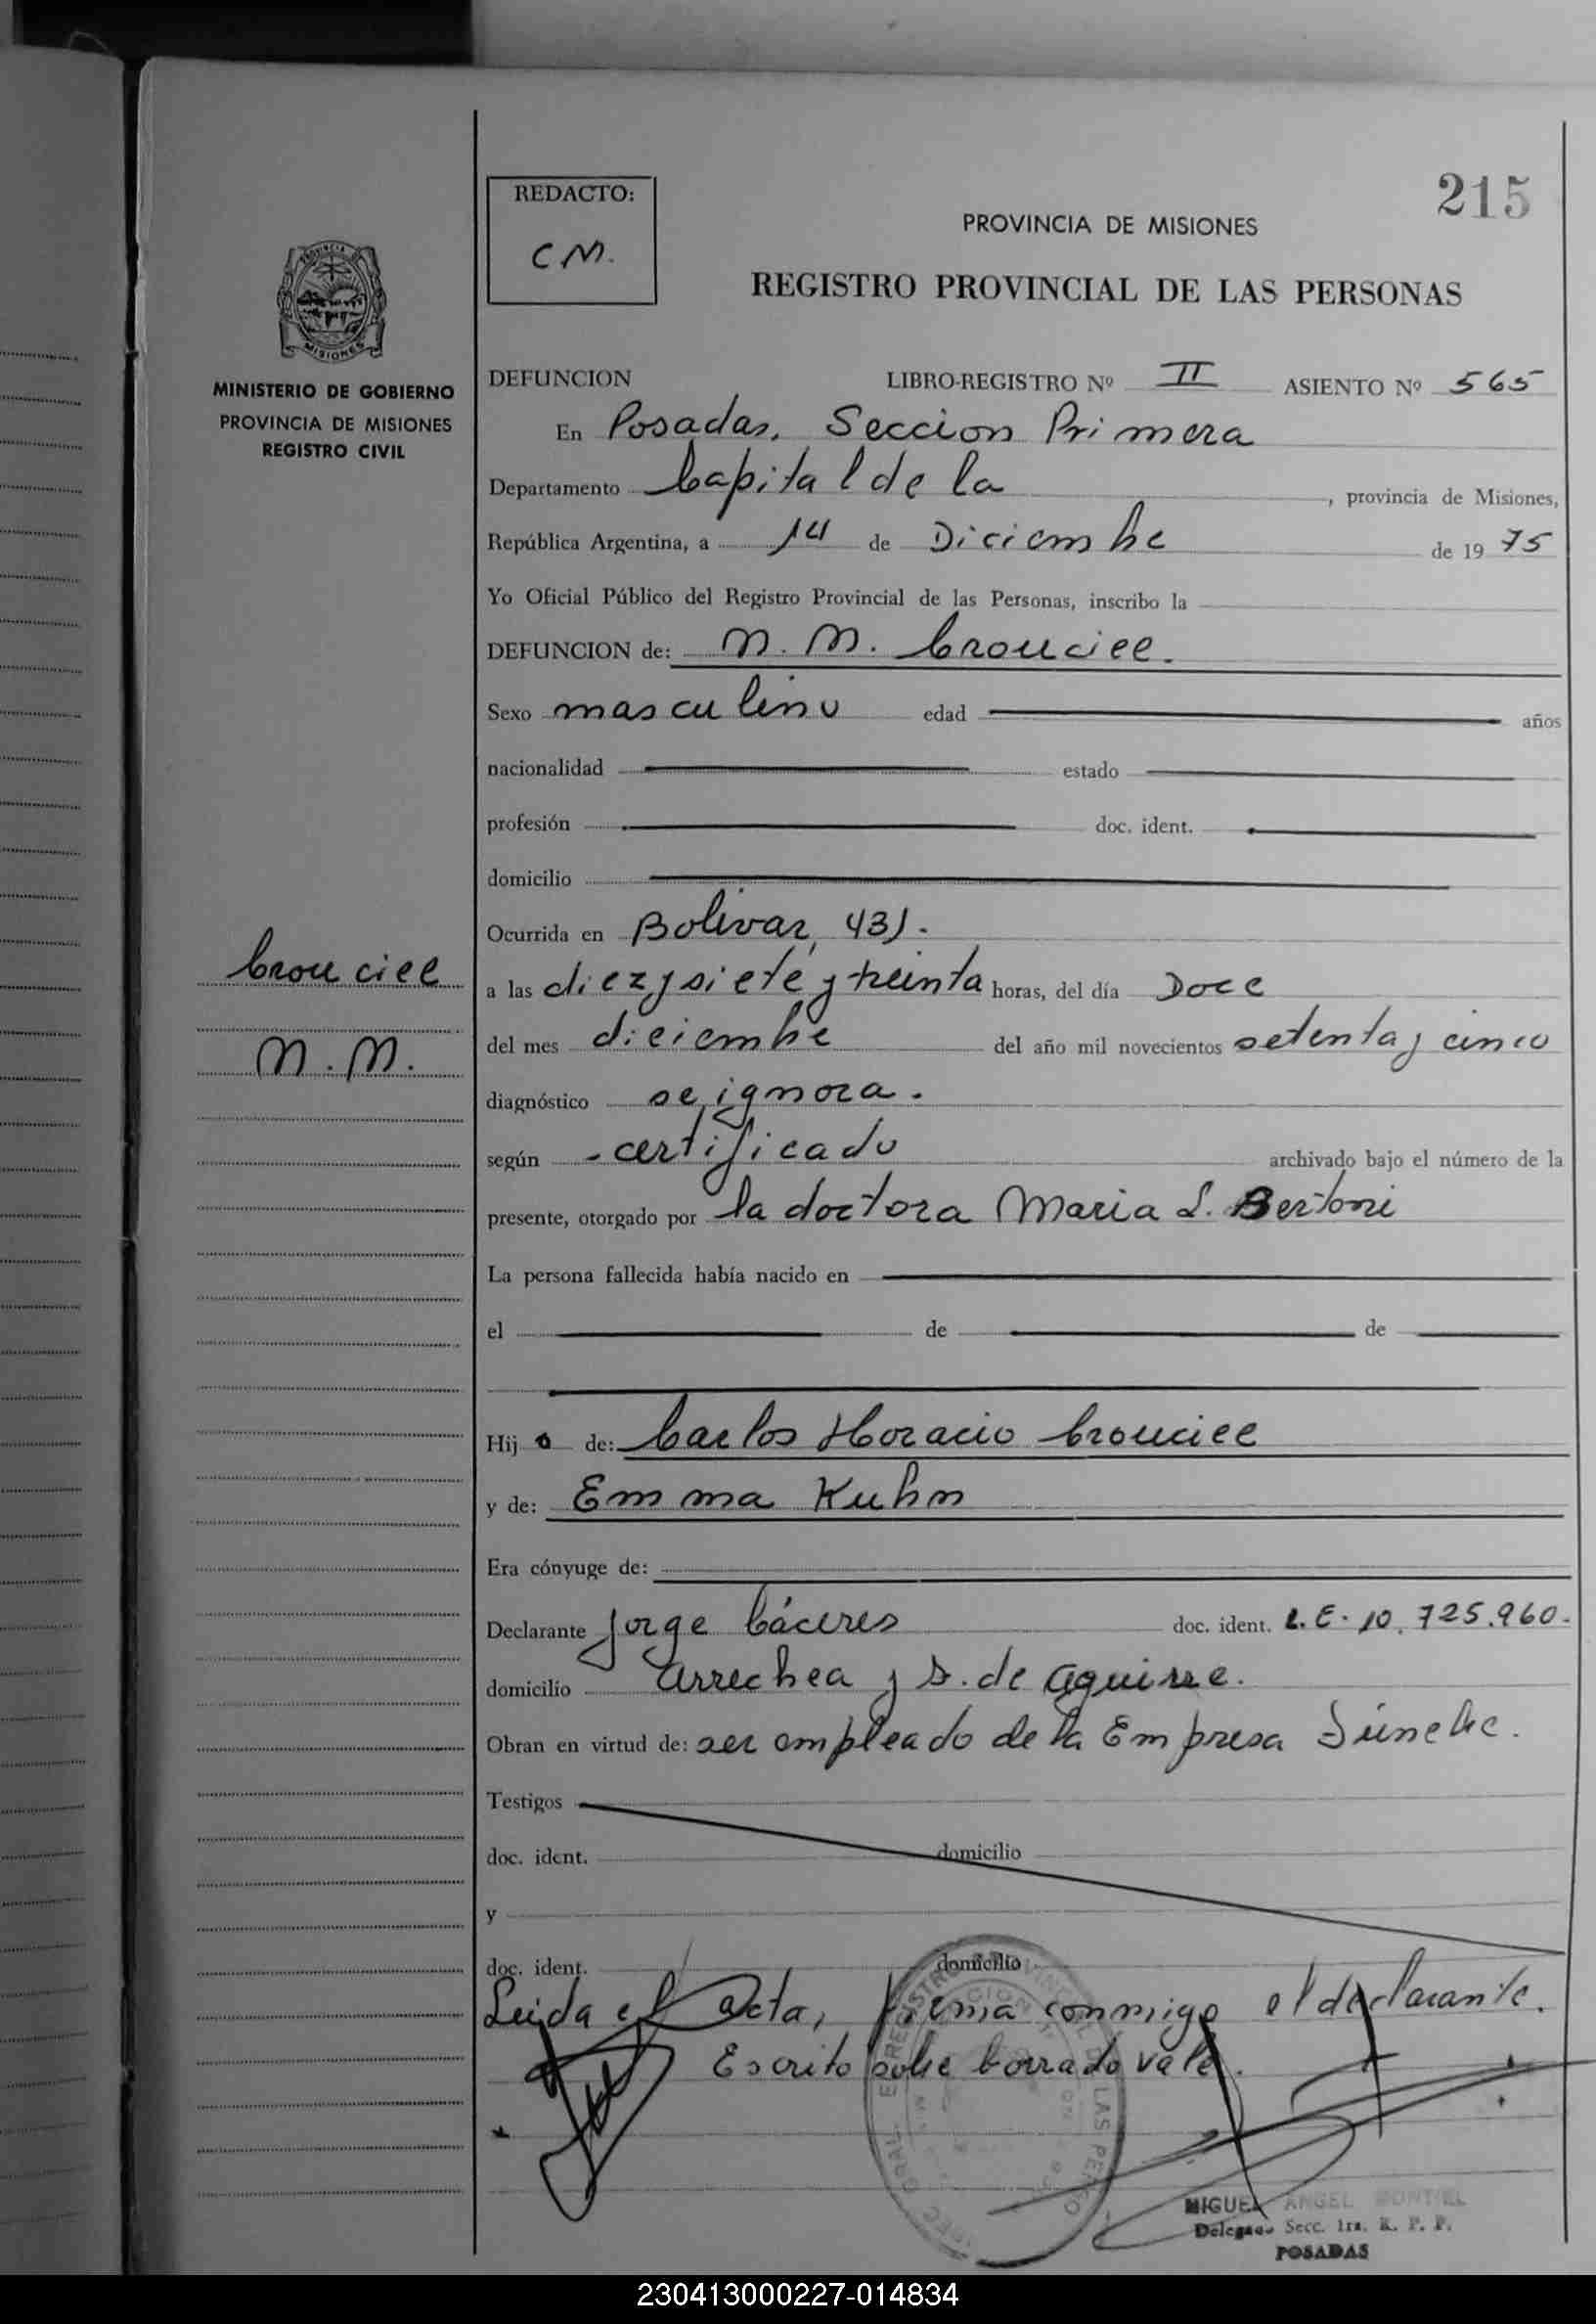 215
REDACTO:
C M.
PROVINCIA DE MISIONES
REGISTRO PROVINCIAL DE LAS PERSONAS
MISIONES
MINISTERIO DE GOBIERNO
PROVINCIA DE MISIONES
REGISTRO CIVIL
DEFUNCION LIBRO-REGISTRO Nº II ASIENTO Nº 565
En Posadas, Seccion Primera
Departamento Capital de la, provincia de Misiones,
República Argentina, a 14 de Diciembre de 19 75
Yo Oficial Público del Registro Provincial de las Personas, inscribo la
DEFUNCION de: N. N. Crouciee.
Sexo masculino edad años
nacionalidad estado
profesión doc. ident.
domicilio
Ocurrida en Bolivar, 431.
Crouciee
N. N.
a las diez y siete y treinta horas, del día Doce
del mes diciembre del año mil novecientos setenta y cinco
diagnóstico se ignora.
según - certificado archivado bajo el número de la
presente, otorgado por la doctora Maria L. Bertoni
La persona fallecida había nacido en
el de de
Hij o de: Carlos Horacio Crouciee
y de: Emma Kuhn
Era cónyuge de:
Declarante Jorge Cáceres doc. ident. L. E. 10.725.960.
domicilio Arrechea y S. de Aguirre.
Obran en virtud de: ser empleado de la Empresa Fúnebre.
Testigos
doc. ident. domicilio
y
doc. ident. domicilio
Leida el Acta, firma conmigo el declarante.
Escrito sobre borrado vale.
MIGUEL ANGEL MONTIEL
Delegado Secc. 1ra. R. P. P.
POSADAS
230413000227-014834